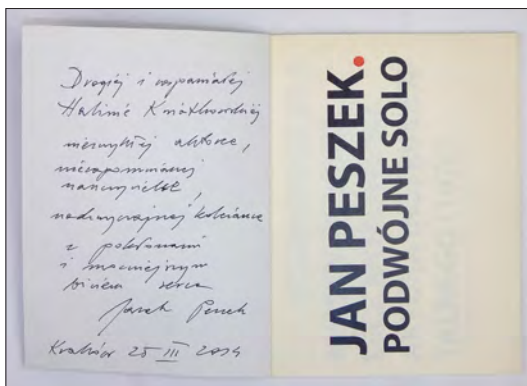 Drogiej i wspaniałej
Halinie Kwiatkowskiej
niezwykłej aktorce,
niezapomnianej
nauczycielce,
nadzwyczajnej koleżance
z pokłonami
i mocniejszym
biciem serca
Janek Peszek
Kraków 25 III 2014
JAN PESZEK.
PODWÓJNE SOLO